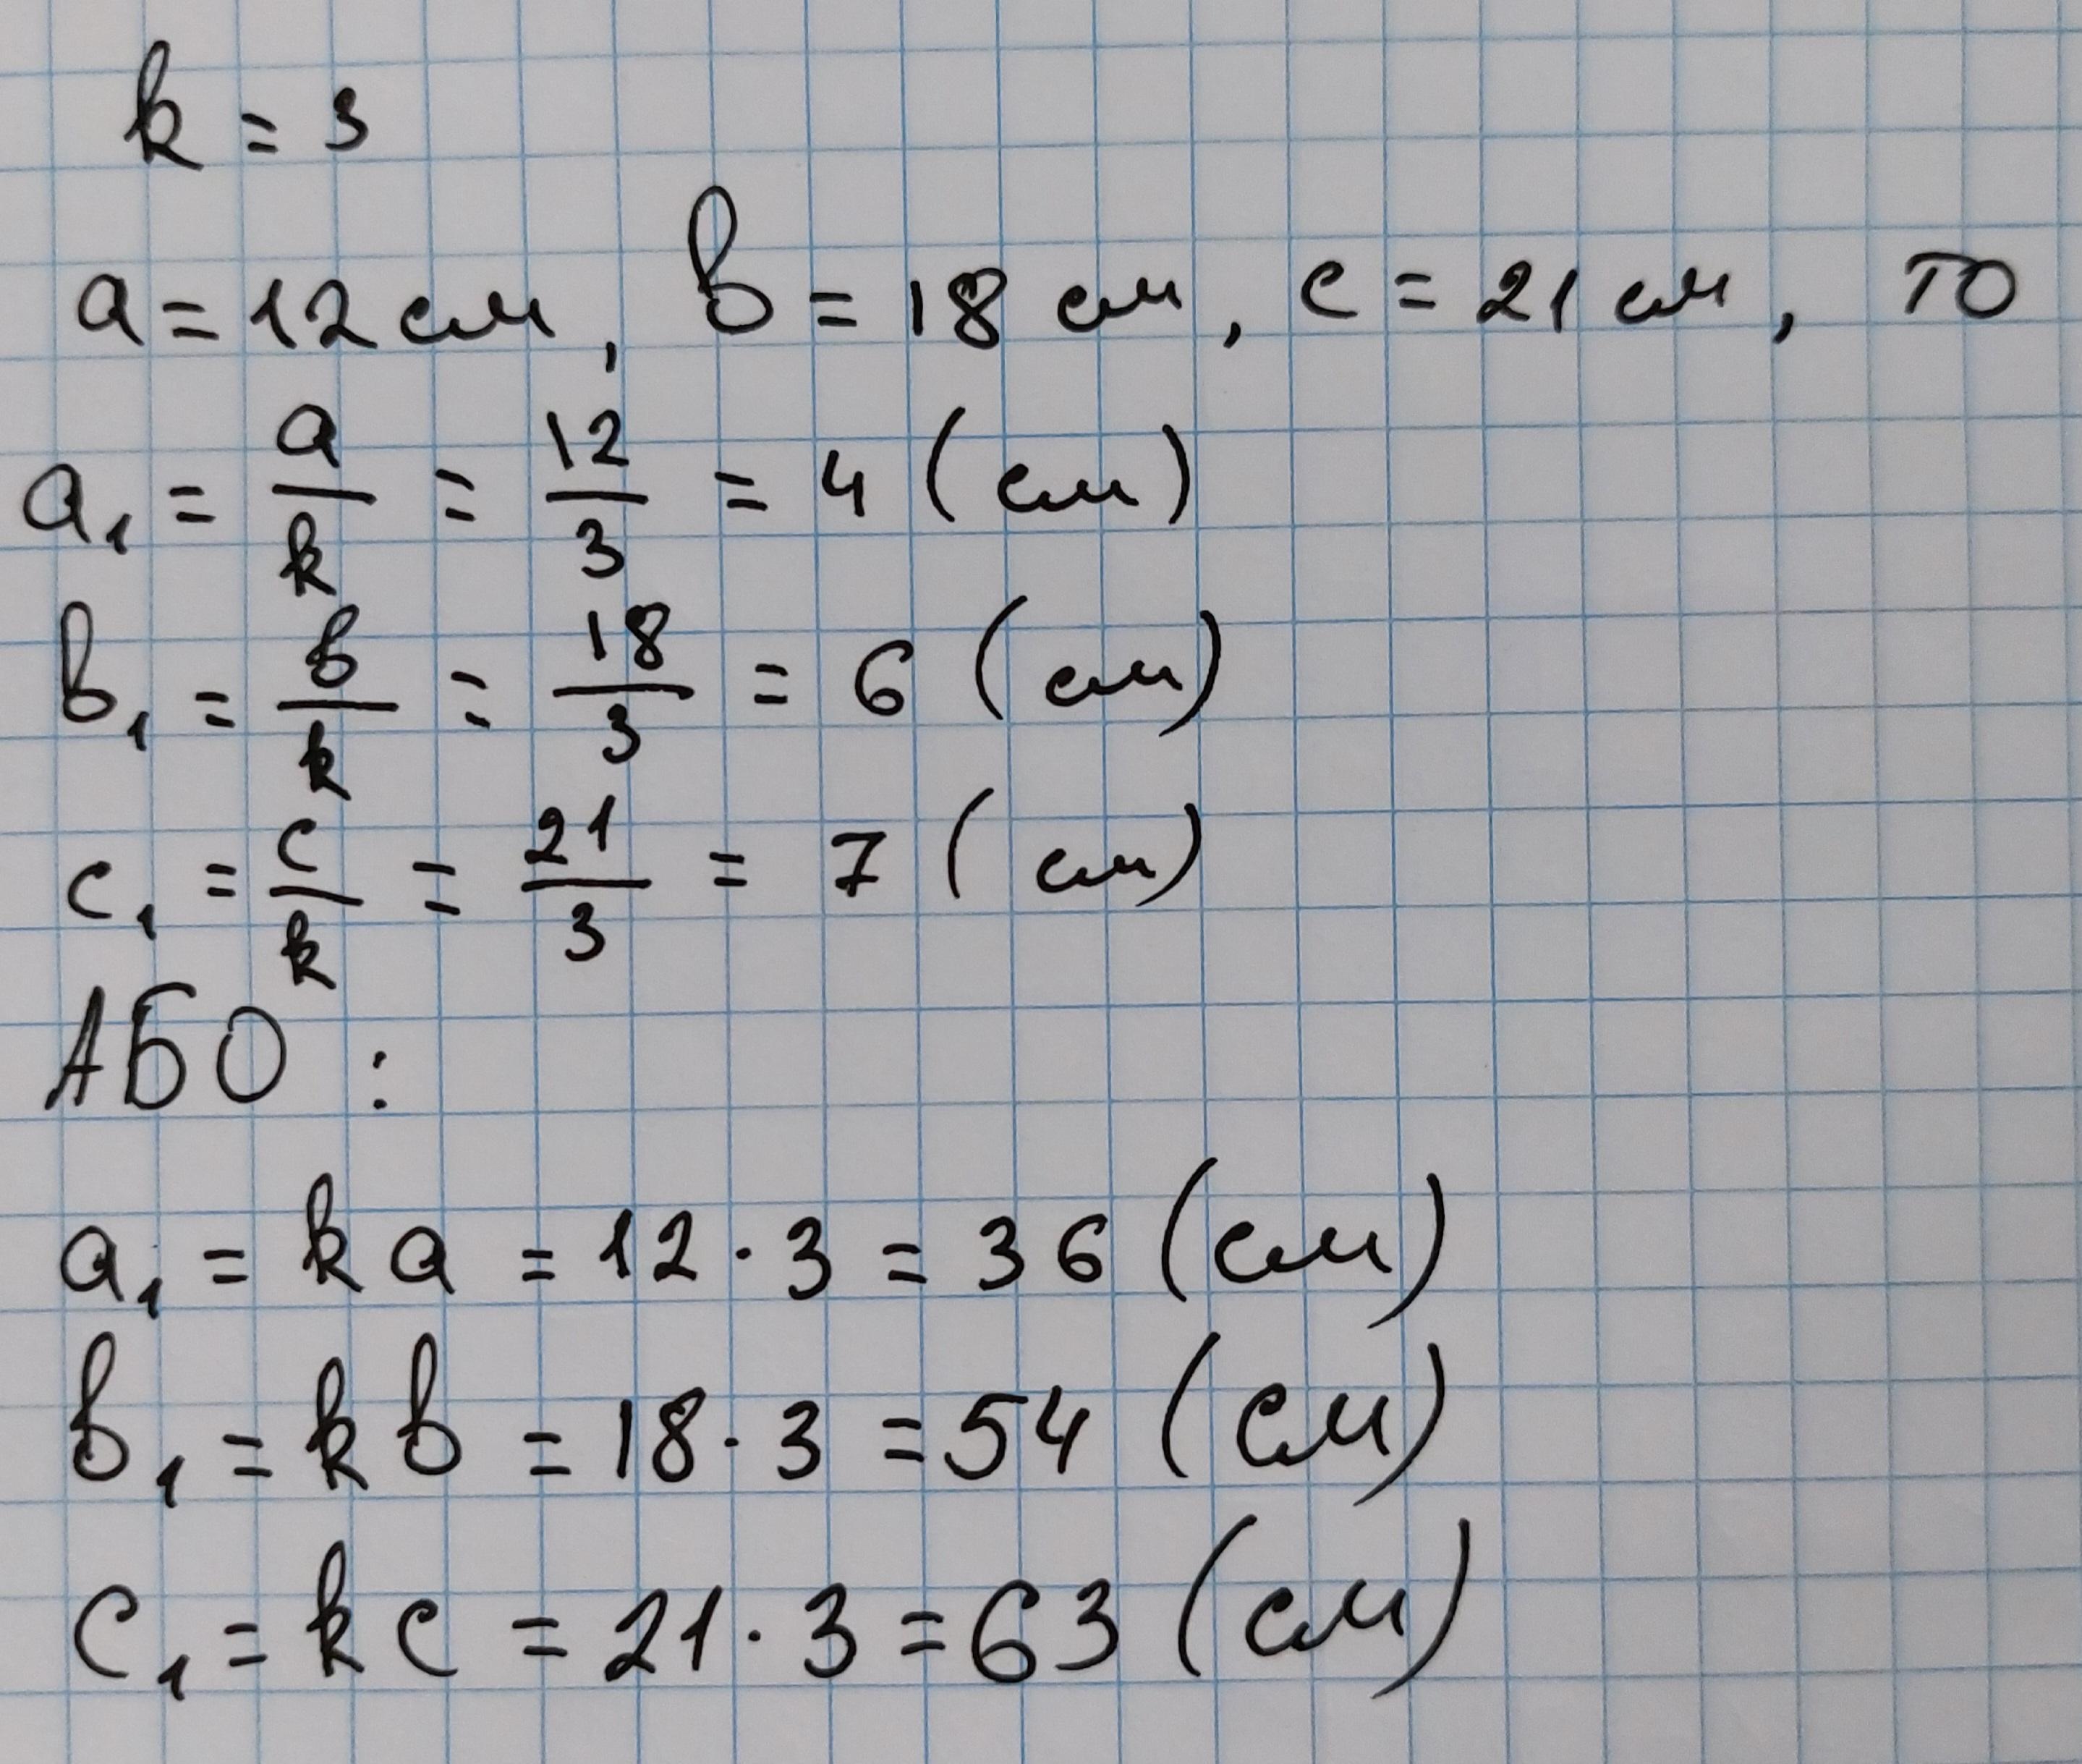 k = 3
a = 12 см, b = 18 см, c = 21 см, то
a₁ = a/k = 12/3 = 4 (см)
b₁ = b/k = 18/3 = 6 (см)
c₁ = c/k = 21/3 = 7 (см)
АБО :
a₁ = k a = 12 · 3 = 36 (см)
b₁ = k b = 18 · 3 = 54 (см)
c₁ = k c = 21 · 3 = 63 (см)